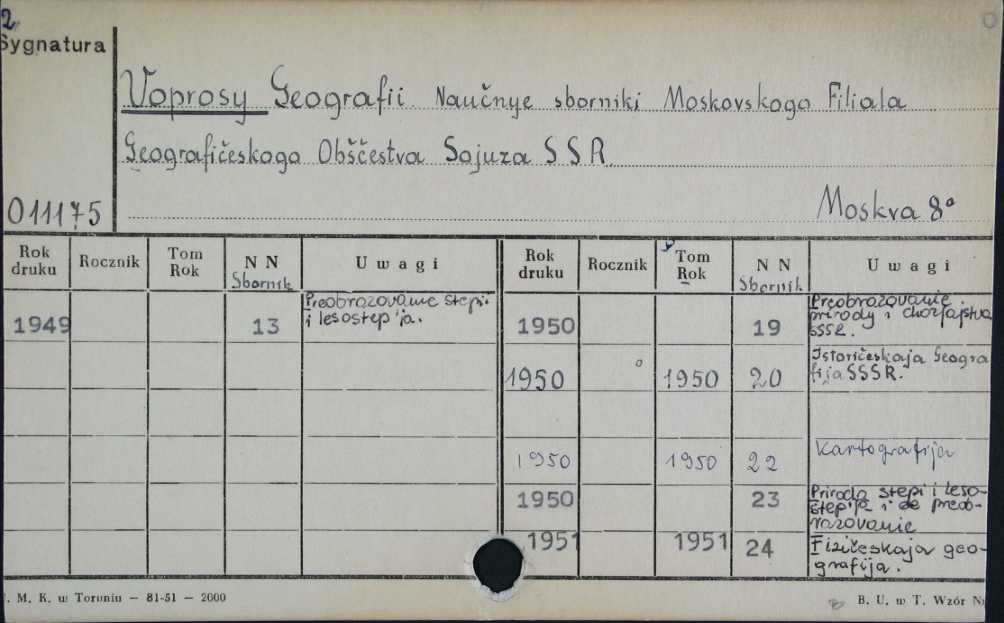 2
Sygnatura
Voprosy Geografii. Naučnye sborniki Moskovskogo Filiala
Geografičeskogo Obščestva Sojuza SSR
011175
Moskva 8°
Rok druku Rocznik Tom Rok N N Sbornik Uwagi Rok druku Rocznik Tom Rok N N Sbornik Uwagi
1949 13 Preobrazovanie stepi
i lesostep'ja.
1950 19 Preobrazovanie
prirody i chozjajstva
SSSR.
1950 1950 20 Istoričeskaja Geogra
fija SSSR.
1950 1950 22 Kartografija
1950 23 Priroda stepi i leso-
step'ja i ee preob-
razovanie
1951 1951 24 Fizičeskaja geo-
grafija.
. M. K. w Toruniu — 81-51 — 2000
B. U. w T. Wzór Nr